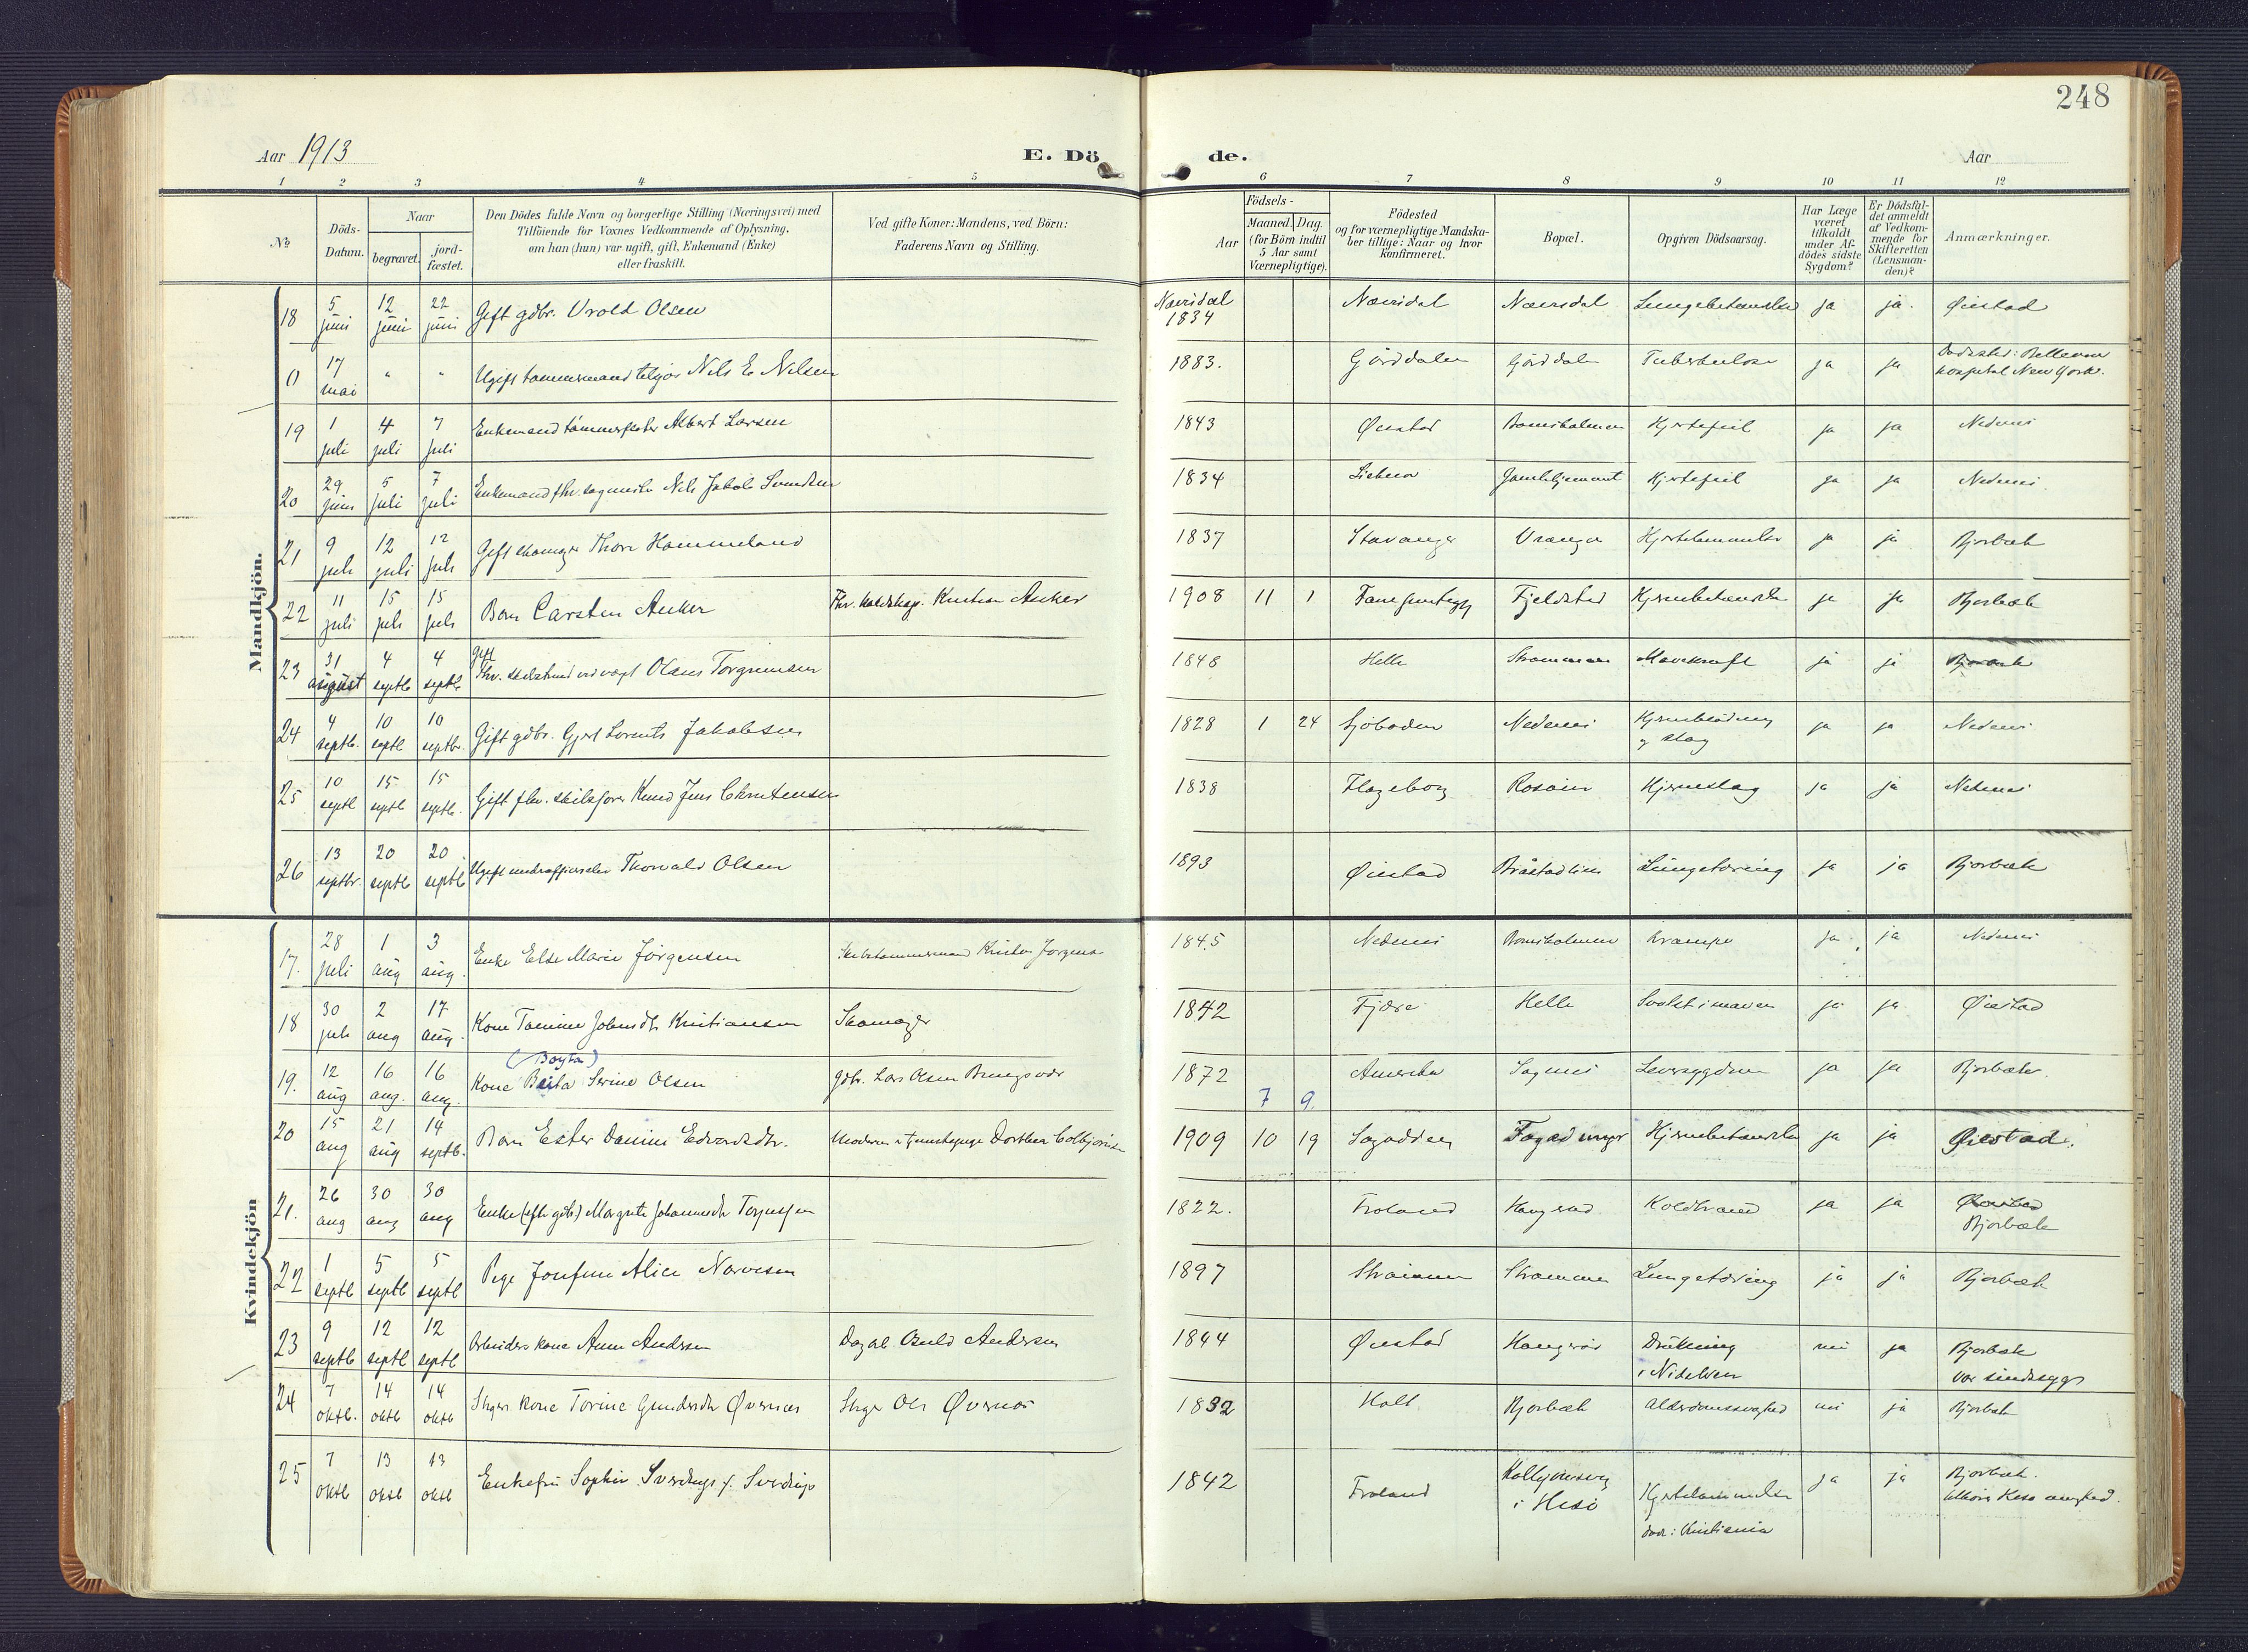 248
Aar 1913 E. Dö de. Aar
1 2 3 4 5 6 7 8 9 10 11 12
No
Döds-Datum.
Naar
begravet.
jord-fæstet.
Den Dödes fulde Navn og borgerlige Stilling (Næringsvei) med
Tilföiende for Voxnes Vedkommende af Oplysning,
om han (hun) var ugift, gift, Enkemand (Enke)
eller fraskilt.
Ved gifte Koner: Mandens, ved Börn:
Faderens Navn og Stilling.
Födsels-
Aar
Maaned. Dag.
(for Börn indtil
5 Aar samt
Værnepligtige).
Födested
og for værnepligtige Mandska-
ber tillige: Naar og hvor
konfirmeret.
Bopæl.
Opgiven Dödsaarsag.
Har Læge
været
tilkaldt
under Af-
dödes sidste
Sygdom?
Er Dödsfal-
det anmeldt
af Vedkom-
mende for
Skifteretten
(Lensman-
den)?
Anmærkninger.
Mandkjön.
18 5 juni 12 juni 22 juni Gift gdbr. Vrold Olsen Næsdal 1834 Næsdal Næsdal Lungebetændelse ja ja. Øiestad
0 17 mai " " Ugift tømmermand Nils E. Nilsen 1883. Gjørddalen Gjørddalen Tuberkulose ja ja Dødssted: Bellevue hospital New York.
19 1 juli 4 juli 7 juli Enkemand tømmerfløter Albert Larsen 1843 Øiestad Bomsholmen Hjertefeil ja ja Nedenes
20 29 juni 5 juli 7 juli Enkemand fhv. sagmester Nils Jakob Svendsen 1834 Gamlehjemmet Hjertefeil ja ja Nedenes
21 9 juli 12 juli 12 juli Gift skomager Thore Hommeland 1837 Stavanger Vrangen Hjertelammelse ja ja Bjorbæk
22 11 juli 15 juli 15 juli Barn Carsten Anker Fhv. Kristian Anker 1908 11 1 Fjeldsted Hjernebetændelse ja ja Bjorbæk
23 31 august 4 septb 4 septb Gift Fhv. Olaus Torgrimsen 1848 Helle Strømmen Mavekræft ja ja Bjorbæk
24 4 septb. 10 septb 10 septbr. Gift gdbr. Gjert Lorents Jakobsen 1828 1 24 Sjøboden Nedenes Hjerneblødning og slag ja ja Nedenes
25 10 septb 15 septb 15 septb. Gift fhv. skibsfører Knud Jens Christensen 1838 Flageborg Rosøien Hjerneslag ja ja Nedenes
26 13 septbr. 20 septb 20 septb Ugift underofficerselev Thorvald Olsen 1893 Øiestad Bråstadlien Lungetæring ja ja Bjorbæk
Kvindekjön
17. 28 juli 1 aug 3 aug. Enke Else Marie Jörgensen Skibstømmermand Kristen Jørgensen 1845 Nedenes Bomsholmen Krampe ja ja Nedenes
18 30 juli 2 aug 17 aug. Kone Tomine Johnsdtr Kristiansen Skomager 1842 Fjære Helle Svulst i maven ja ja Øiestad
19. 12 aug 16 aug. 16 aug. Kone (Boyta) Berta Serine Olsen Gdbr. Lars Olsen 1872 7 9. Amerika Sagnes Leversygdom ja ja Bjorbæk.
20 15 aug 21 aug 14 septb. Barn Ester Danine Edvardsdtr. Moderen er tjenestepige Dorthea Colbjørnsen 1909 10 19 Sagodden Hjernebetændelse ja ja Øiestad.
21. 26 aug 30 aug 30 aug Enke (efter gdbr) Margrete Johannesdtr Torjussen 1822. Froland Kangerød Koldbrand ja ja Øiestad Bjorbæk
22 1 septb 5 septb 5 septb Pige Josefine Alice Narvesen 1897 Strømmen Strømmen Lungetæring ja ja Bjorbæk
23 9 septb 12 septb 12 septb Arbeiders kone Anne Andersen Dagarb. Andersen 1844 Øiestad Kangerød Drukning i Nidelven nei ja Bjorbæk var sindssyg
24 7 oktb. 14 oktb 14 oktb Kone Torine Gundersdtr Øvernæs Ole Øvernæs 1832 Holt Bjorbæk Alderdomssvaghed nei ja Bjorbæk
25 7 oktb 13 oktb 13 oktb Enkefru Sophie Sverdrup f. Sverdrup 1842 Froland Kolbjørnsvig i Hisø Hjertelammelse død i Kristiania ja ja Bjorbæk. tilhører Hisø menighed.